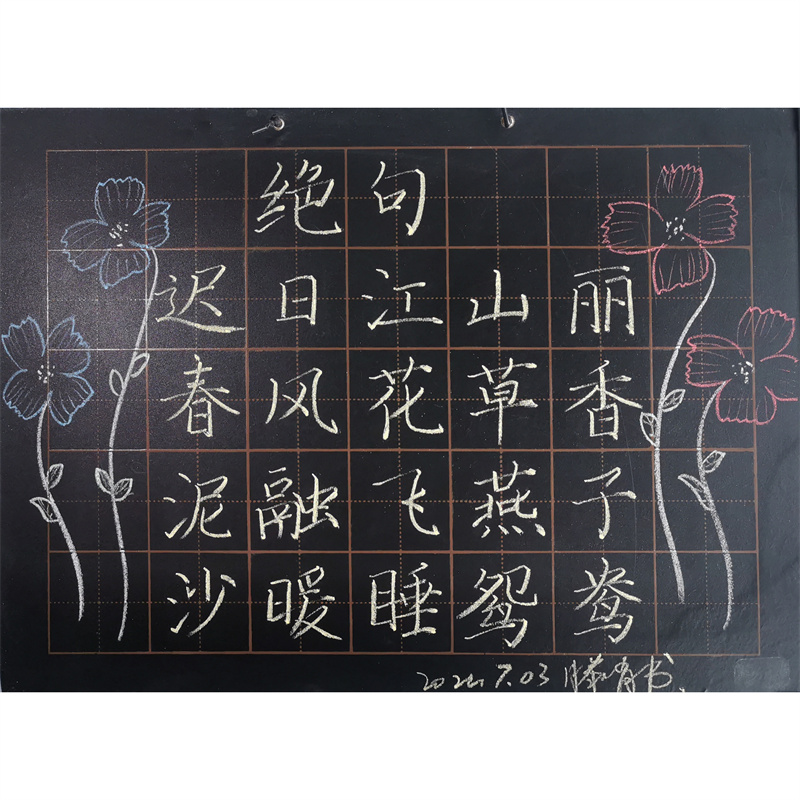 绝句
迟日江山丽
春风花草香
泥融飞燕子
沙暖睡鸳鸯
7.03 书